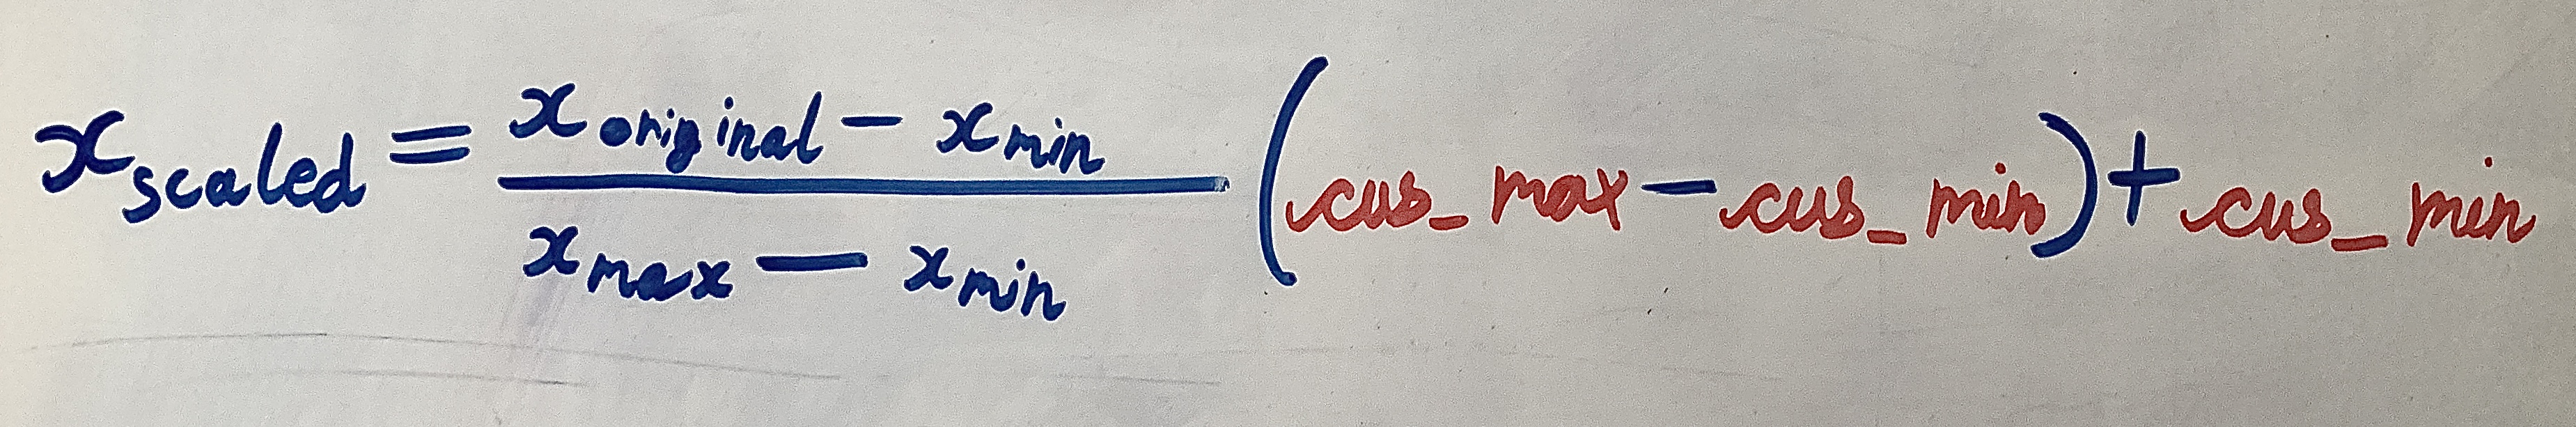 x_scaled = (x_original - x_min) / (x_max - x_min) (cus_max - cus_min) + cus_min